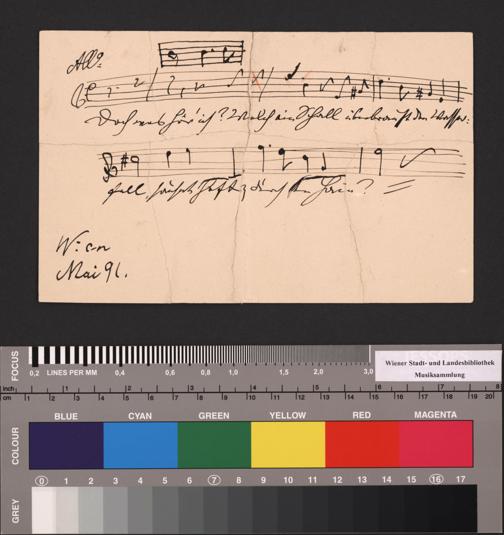 Allo.
Doch was hör' ich? Welch ein Schall überbrauft den Wasser-
fall, durch den Hain?
Wien
Mai 91.
Wiener Stadt- und Landesbibliothek
Musiksammlung
FOCUS
0,2 LINES PER MM 0,4 0,6 0,8 1,0 1,5 2,0 3,0
inch 1 2 3 4 5 6 7 8
cm 1 2 3 4 5 6 7 8 9 10 11 12 13 14 15 16 17 18 19 20
COLOUR
BLUE CYAN GREEN YELLOW RED MAGENTA
GREY
0 1 2 3 4 5 6 7 8 9 10 11 12 13 14 15 16 17